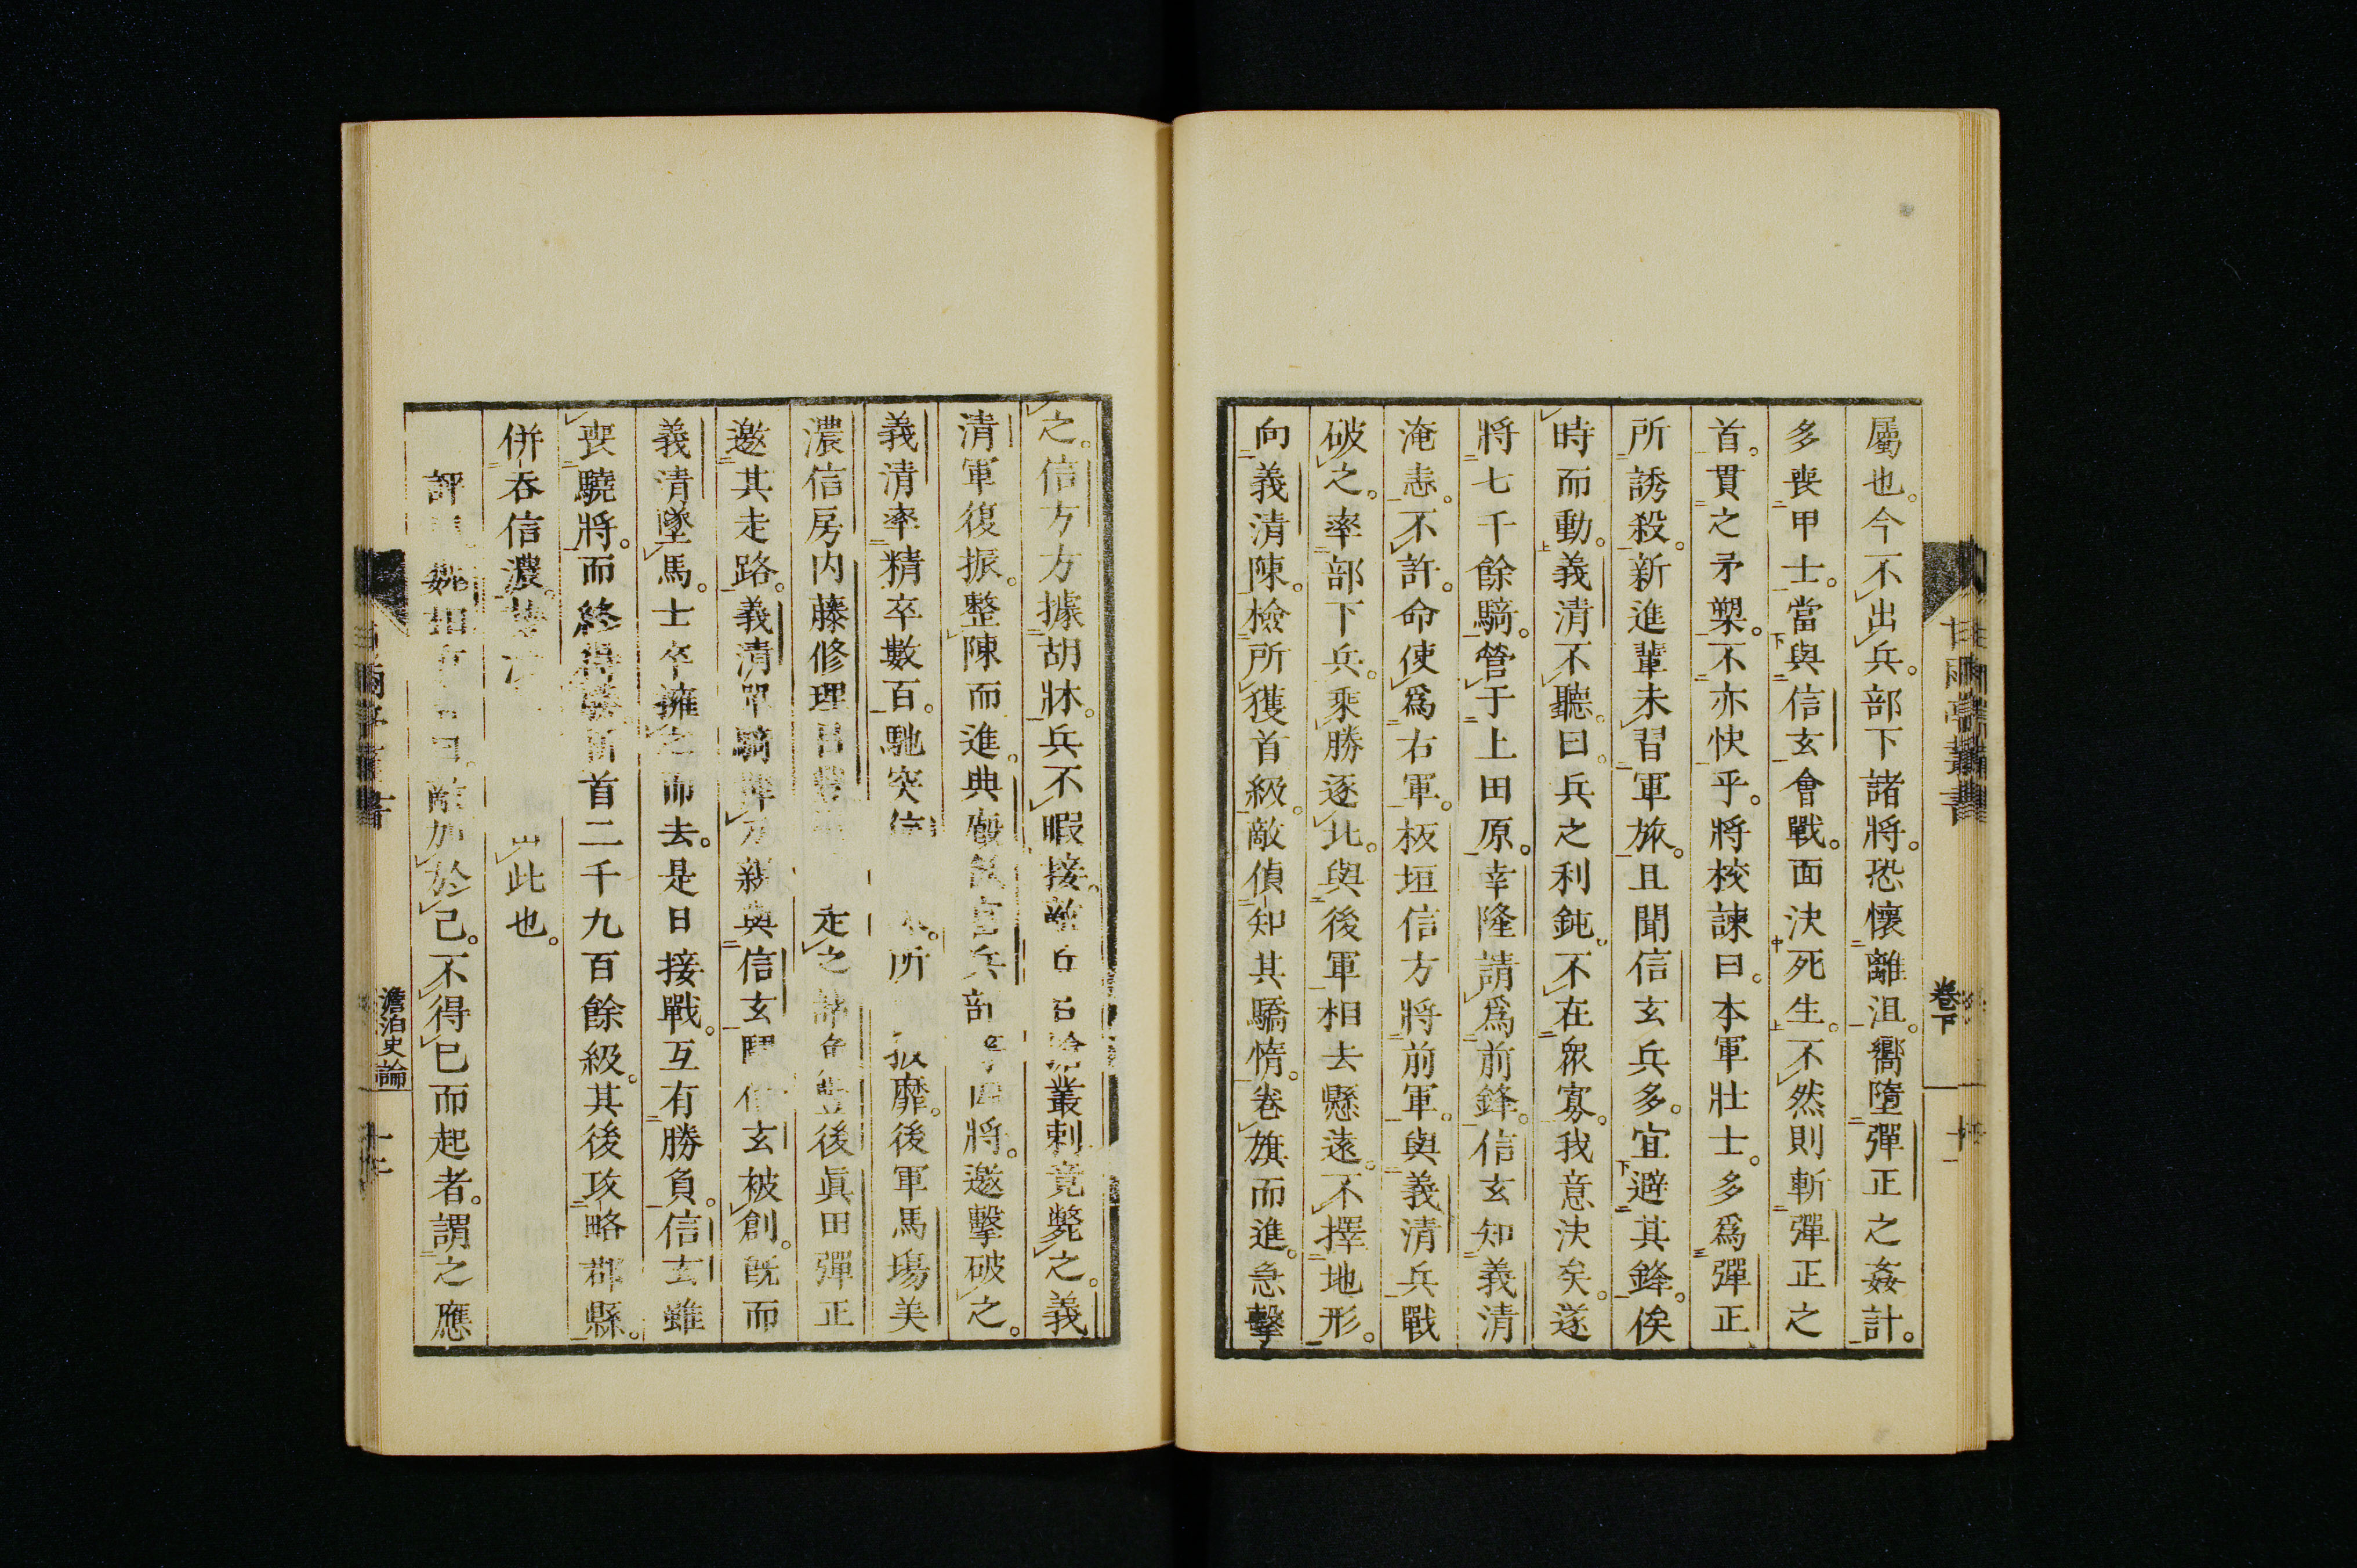 屬也。今不出兵。部下諸將。恐懷離沮。嚮墮彈正之姦計。
多喪甲士。當與信玄會戰。面決死生。不然則斬彈正之
首。貫之矛槊。不亦快乎。將校諫曰。本軍壯士。多爲彈正
所誘殺。新進輩未習軍旅。且聞信玄兵多。宜避其鋒。俟
時而動。義清不聽。曰。兵之利鈍。不在衆寡。我意決矣。遂
將七千餘騎。營于上田原。幸隆請爲前鋒。信玄知義清
淹恚。不許。命使爲右軍。板垣信方將前軍。與義清兵戰
破之。率部下兵。乘勝逐北。與後軍相去懸遠。不擇地形。
向義清陳。檢所獲首級。敵偵知其驕惰。卷旗而進。急擊
卷下
之。信方方據胡牀。兵不暇接。叢刺竟斃之。義
清軍復振。整陳而進。典廄兵部將。邀擊破之。
義清率精卒數百。馳突信所靡。後軍馬場美
濃信房内藤修理走之後眞田彈正
邀其走路。義清單騎親與信玄鬪信玄被創。既而
義清墜馬。士卒擁之而去。是日接戰。互有勝負。信玄雖
喪驍將。而終得首二千九百餘級。其後攻略郡縣。
併吞信濃。此也。
評敵加於己。不得已而起者。謂之應
澹泊史論